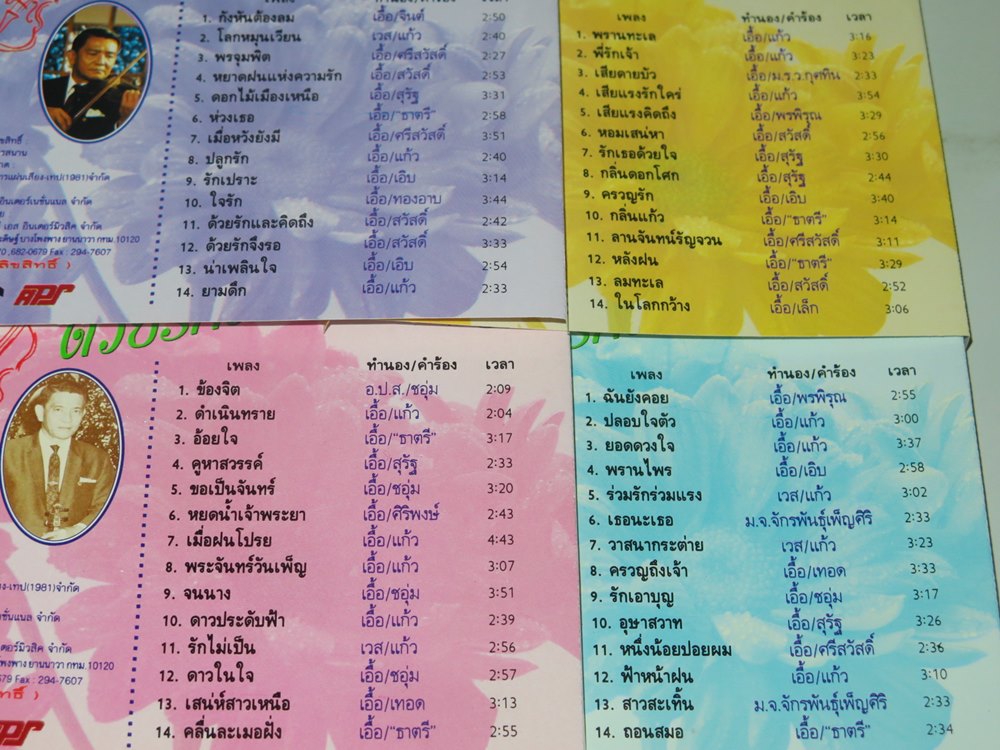 เพลง ทำนอง/คำร้อง เวลา
1. กังหันต้องลม เอื้อ/จินต์ 2:50
2. โลกหมุนเวียน เวส/แก้ว 2:40
3. พรจุมพิต เอื้อ/ศรีสวัสดิ์ 2:27
4. หยาดฝนแห่งความรัก เอื้อ/สวัสดิ์ 2:53
5. ดอกไม้เมืองเหนือ เอื้อ/สุรัฐ 3:31
6. ห่วงเธอ เอื้อ/"ธาตรี" 2:58
7. เมื่อหวังยังมี เอื้อ/ศรีสวัสดิ์ 3:51
8. ปลูกรัก เอื้อ/แก้ว 2:40
9. รักเปราะ เอื้อ/เอิบ 3:14
10. ใจรัก เอื้อ/ทองอาบ 3:44
11. ด้วยรักและคิดถึง เอื้อ/สวัสดิ์ 2:42
12. ด้วยรักจึงรอ เอื้อ/สวัสดิ์ 3:33
13. น่าเพลินใจ เอื้อ/เอิบ 2:54
14. ยามดึก เอื้อ/แก้ว 2:33
การแผ่นเสียง-เทป(1981)จำกัด
อินเตอร์เนชั่นแนล จำกัด
เอส อินเตอร์มิวสิค จำกัด
บางโพงพาง ยานนาวา กทม.10120
,682-0679 Fax : 294-7607
ลิขสิทธิ์ )
เพลง ทำนอง/คำร้อง เวลา
1. พรานทะเล เอื้อ/แก้ว 3:16
2. พี่รักเจ้า เอื้อ/แก้ว 3:23
3. เสียดายบัว เอื้อ/ม.ร.ว.กุศทิน 2:33
4. เสียแรงรักใคร่ เอื้อ/แก้ว 3:54
5. เสียแรงคิดถึง เอื้อ/พรพิรุณ 3:29
6. หอมเสน่หา เอื้อ/สวัสดิ์ 2:56
7. รักเธอด้วยใจ เอื้อ/สุรัฐ 3:30
8. กลิ่นดอกโศก เอื้อ/สุรัฐ 2:44
9. ครวญรัก เอื้อ/เอิบ 3:40
10. กลิ่นแก้ว เอื้อ/"ธาตรี" 3:14
11. ลานจันทน์รัญจวน เอื้อ/ศรีสวัสดิ์ 3:11
12. หลังฝน เอื้อ/"ธาตรี" 3:29
13. ลมทะเล เอื้อ/สวัสดิ์ 2:52
14. ในโลกกว้าง เอื้อ/เล็ก 3:06
เพลง ทำนอง/คำร้อง เวลา
1. ข้องจิต อ.ป.ส./ชอุ่ม 2:09
2. ดำเนินทราย เอื้อ/แก้ว 2:04
3. อ้อยใจ เอื้อ/"ธาตรี" 3:17
4. คูหาสวรรค์ เอื้อ/สุรัฐ 2:33
5. ขอเป็นจันทร์ เอื้อ/ชอุ่ม 3:20
6. หยดน้ำเจ้าพระยา เอื้อ/ศิริพงษ์ 2:43
7. เมื่อฝนโปรย เอื้อ/แก้ว 4:43
8. พระจันทร์วันเพ็ญ เอื้อ/แก้ว 3:07
9. จนนาง เอื้อ/ชอุ่ม 3:51
10. ดาวประดับฟ้า เอื้อ/แก้ว 2:39
11. รักไม่เป็น เวส/แก้ว 2:56
12. ดาวในใจ เอื้อ/ชอุ่ม 2:57
13. เสน่ห์สาวเหนือ เอื้อ/เทอด 3:13
14. คลื่นละเมอฝั่ง เอื้อ/"ธาตรี" 2:55
ง-เทป(1981)จำกัด
ชั่นแนล จำกัด
ตอร์มิวสิค จำกัด
โพงพาง ยานนาวา กทม.10120
679 Fax : 294-7607
เพลง ทำนอง/คำร้อง เวลา
1. ฉันยังคอย เอื้อ/พรพิรุณ 2:55
2. ปลอบใจตัว เอื้อ/แก้ว 3:00
3. ยอดดวงใจ เอื้อ/แก้ว 3:37
4. พรานไพร เอื้อ/เอิบ 2:58
5. ร่วมรักร่วมแรง เวส/แก้ว 3:02
6. เธอนะเธอ ม.จ.จักรพันธุ์เพ็ญศิริ 2:33
7. วาสนากระต่าย เวส/แก้ว 3:23
8. ครวญถึงเจ้า เอื้อ/เทอด 3:33
9. รักเอาบุญ เอื้อ/ชอุ่ม 3:17
10. อุษาสวาท เอื้อ/สุรัฐ 3:26
11. หนึ่งน้อยปอยผม เอื้อ/ศรีสวัสดิ์ 2:36
12. ฟ้าหน้าฝน เอื้อ/แก้ว 3:10
13. สาวสะเทิ้น ม.จ.จักรพันธุ์เพ็ญศิริ 2:33
14. ถอนสมอ เอื้อ/"ธาตรี" 2:34